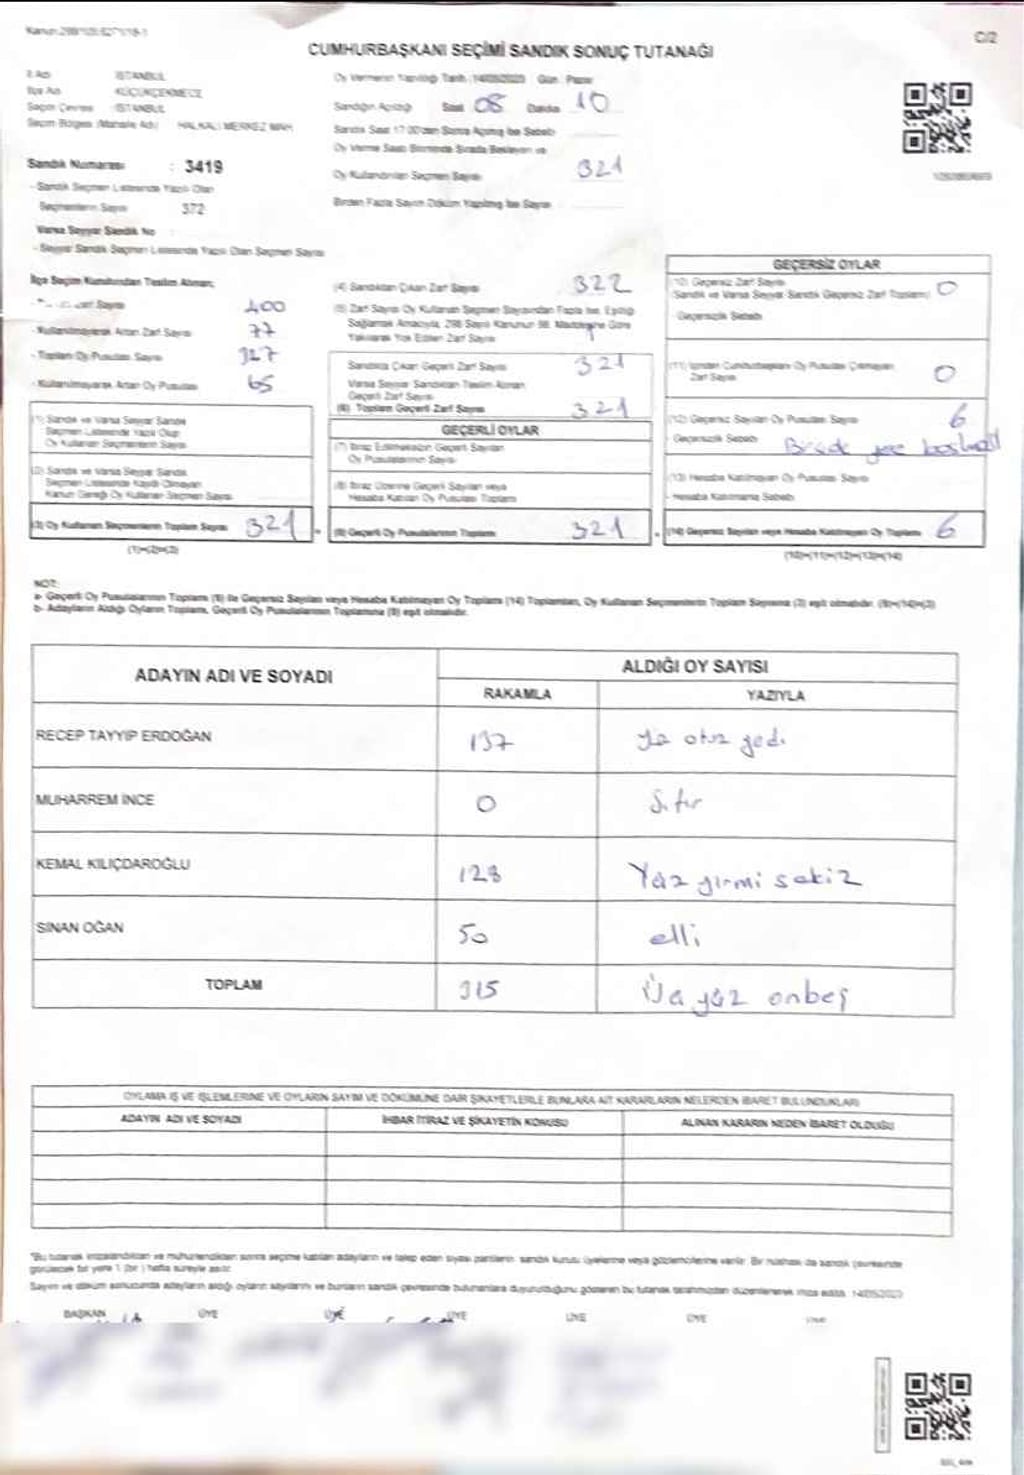 C/2
CUMHURBAŞKANI SEÇİMİ SANDIK SONUÇ TUTANAĞI
İl Adı İSTANBUL
İlçe Adı KÜÇÜKÇEKMECE
Seçim Çevresi İSTANBUL
Seçim Bölgesi (Mahalle Adı) HALKALI MERKEZ MAH
Sandık Numarası : 3419
- Sandık Seçmen Listesinde Yazılı Olan
Seçmenlerin Sayısı 372
Varsa Seyyar Sandık No
- Seyyar Sandık Seçmen Listesinde Yazılı Olan Seçmen Sayısı
Oy Vermenin Yapıldığı Tarih 14/05/2023 Gün Pazar
Sandığın Açıldığı Saat 08 Dakika 10
Sandık Saat 17.00'dan Sonra Açılmış İse Sebebi
Oy Verme Saati Bitiminde Sırada Bekleyen ve
Oy Kullandırılan Seçmen Sayısı 321
Birden Fazla Sayım Döküm Yapılmış İse Sayısı
İlçe Seçim Kurulundan Teslim Alınan;
Zarf Sayısı 400
- Kullanılmayarak Artan Zarf Sayısı 77
- Toplam Oy Pusulası Sayısı 327
- Kullanılmayarak Artan Oy Pusulası 65
(1) Sandık ve Varsa Seyyar Sandık
Seçmen Listesinde Yazılı Olup
Oy Kullanan Seçmenlerin Sayısı
(2) Sandık ve Varsa Seyyar Sandık
Seçmen Listesinde Kaydı Olmayan
Kanun Gereği Oy Kullanan Seçmen Sayısı
(3) Oy Kullanan Seçmenlerin Toplam Sayısı 321
(1)+(2)=(3)
(4) Sandıktan Çıkan Zarf Sayısı 322
(5) Zarf Sayısı Oy Kullanan Seçmen Sayısından Fazla İse, Eşitliği
Sağlamak Amacıyla, 298 Sayılı Kanunun 98. Maddesine Göre
Yakılarak Yok Edilen Zarf Sayısı 1
Sandıkta Çıkan Geçerli Zarf Sayısı 321
Varsa Seyyar Sandıktan Teslim Alınan
Geçerli Zarf Sayısı
(6) Toplam Geçerli Zarf Sayısı 321
GEÇERLİ OYLAR
(7) İtiraz Edilmeksizin Geçerli Sayılan
Oy Pusulalarının Sayısı
(8) İtiraz Üzerine Geçerli Sayılan veya
Hesaba Katılan Oy Pusulası Toplamı
(9) Geçerli Oy Pusulalarının Toplamı 321
GEÇERSİZ OYLAR
(10) Geçersiz Zarf Sayısı
(Sandık ve Varsa Seyyar Sandık Geçersiz Zarf Toplamı) 0
- Geçersizlik Sebebi
(11) İçinden Cumhurbaşkanı Oy Pusulası Çıkmayan
Zarf Sayısı 0
(12) Geçersiz Sayılan Oy Pusulası Sayısı 6
Geçersizlik Sebebi
(13) Hesaba Katılmayan Oy Pusulası Sayısı
- Hesaba Katılmama Sebebi
(14) Geçersiz Sayılan veya Hesaba Katılmayan Oy Toplamı 6
(10)+(11)+(12)+(13)=(14)
NOT:
a- Geçerli Oy Pusulalarının Toplamı (9) ile Geçersiz Sayılan veya Hesaba Katılmayan Oy Toplamı (14) Toplamları, Oy Kullanan Seçmenlerin Toplam Sayısına (3) eşit olmalıdır. (9)+(14)=(3)
b- Adayların Aldığı Oyların Toplamı, Geçerli Oy Pusulalarının Toplamına (9) eşit olmalıdır.
ADAYIN ADI VE SOYADI
ALDIĞI OY SAYISI
RAKAMLA YAZIYLA
RECEP TAYYİP ERDOĞAN 137 yüz otuz yedi
MUHARREM İNCE 0 Sıfır
KEMAL KILIÇDAROĞLU 128 Yüz yirmi sekiz
SİNAN OĞAN 50 elli
TOPLAM 315 Üç yüz onbeş
OYLAMA İŞ VE İŞLEMLERİNE VE OYLARIN SAYIM VE DÖKÜMÜNE DAİR ŞİKAYETLERLE BUNLARA AİT KARARLARIN NELERDEN İBARET BULUNDUKLARI
ADAYIN ADI VE SOYADI İHBAR İTİRAZ VE ŞİKAYETİN KONUSU ALINAN KARARIN NEDEN İBARET OLDUĞU
*Bu tutanak imzalandıktan ve mühürlendikten sonra seçime katılan adayların ve talep eden siyasi partilerin sandık kurulu üyelerine veya gözlemcilerine verilir. Bir nüshası da sandık çevresinde
görülecek bir yere 1 (bir) hafta süreyle asılır.
Sayım ve döküm sonucunda adayların aldığı oyların sayılarını ve bunların sandık çevresinde bulunanlara duyurulduğunu gösteren bu tutanak tarafımızdan düzenlenerek imza edildi. 14/05/2023
BAŞKAN ÜYE ÜYE ÜYE ÜYE ÜYE